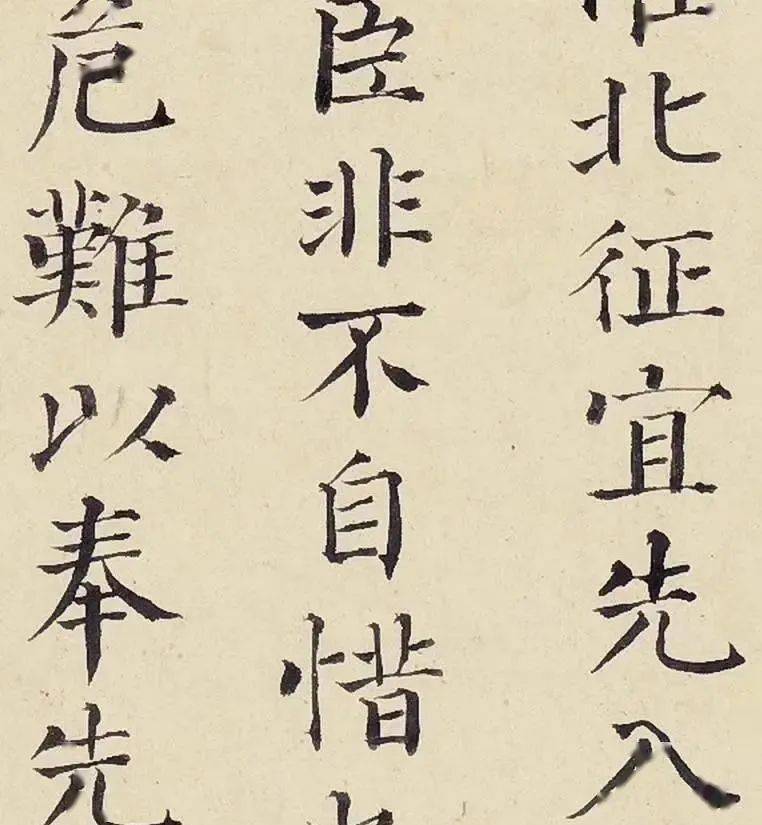 北征宜先入
臣非不自惜
危難以奉先